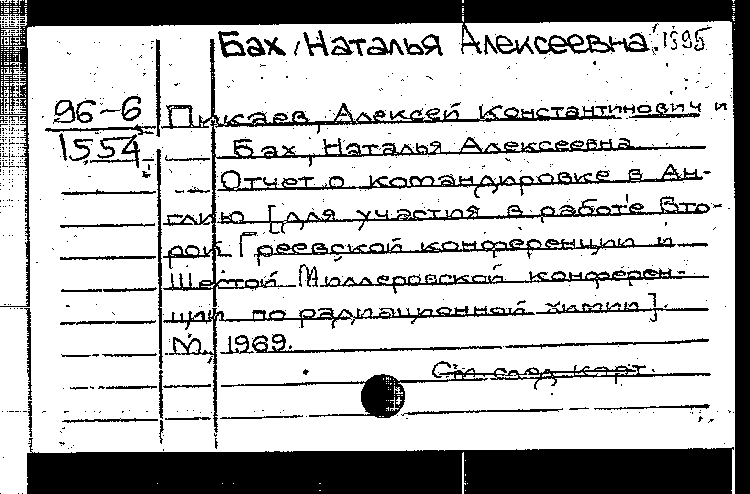 Бах, Наталья Алексеевна. 1895
96-6
1554
Пикаев, Алексей Константинович и
Бах, Наталья Алексеевна
Отчет о командировке в Ан-
глию [для участия в работе Вто-
рой Греевской конференции и
Шестой Миллеровской конферен-
ции по радиационной химии].
М., 1969.
См. след. карт.